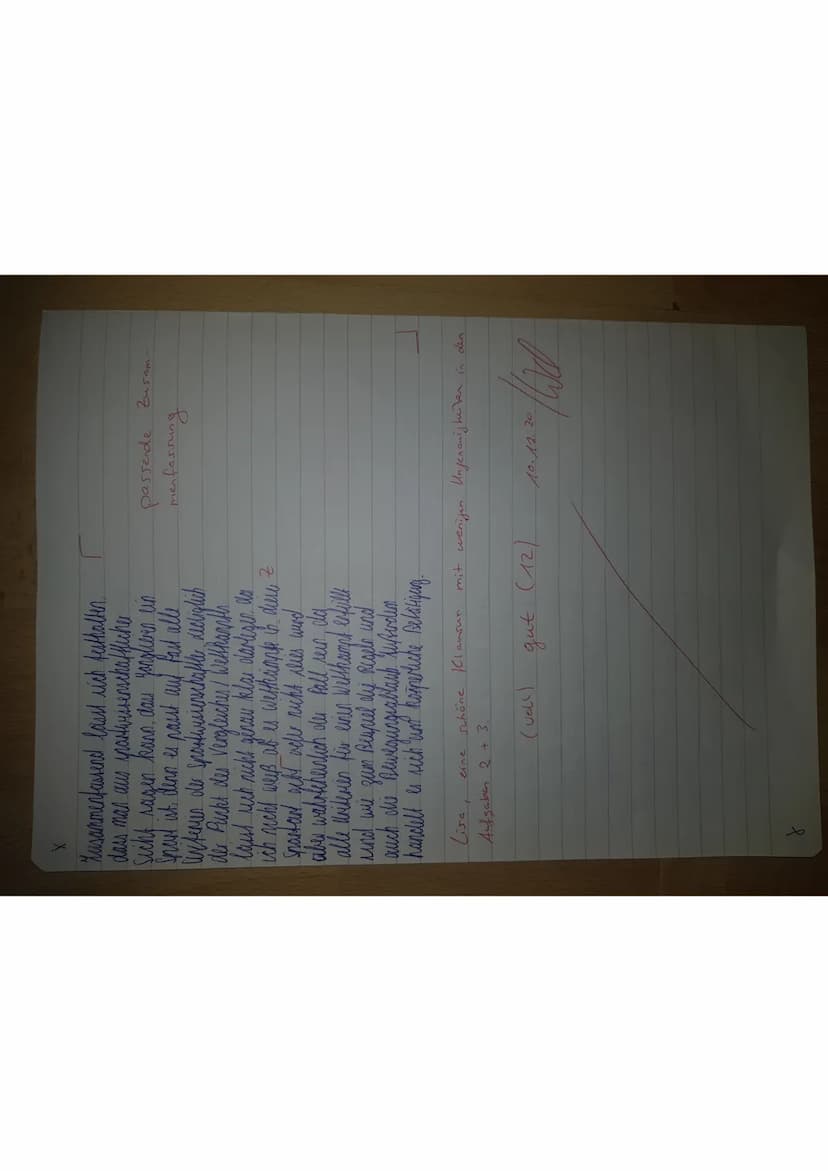 x
Zusammenfassend lässt sich festhalten,
dass man aus sportwissenschaftlicher
Sicht sagen kann, dass ein
Sport ist, denn es passt auf fast alle
Kriterien der Sportwissenschaftler lediglich
der Punkt des Vergleiches/Wettkampfes
lässt sich nicht genau klar darlegen, da
ich nicht weiß ob es Wettkämpfe in dem
Sportart gibt oder nicht dies wird
aber wahrscheinlich der Fall sein, da
alle Kriterien für einen Wettkampf erfüllt
sind wie zum Beispiel die Regeln und
auch das
handelt es sich um körperliche Betätigung.
passende Zusam-
menfassung
Z
Lisa, eine schöne Klausur mit wenigen Ungenauigkeiten in den
Aufgaben 2 + 3.
(voll) gut (12) 10.12.20